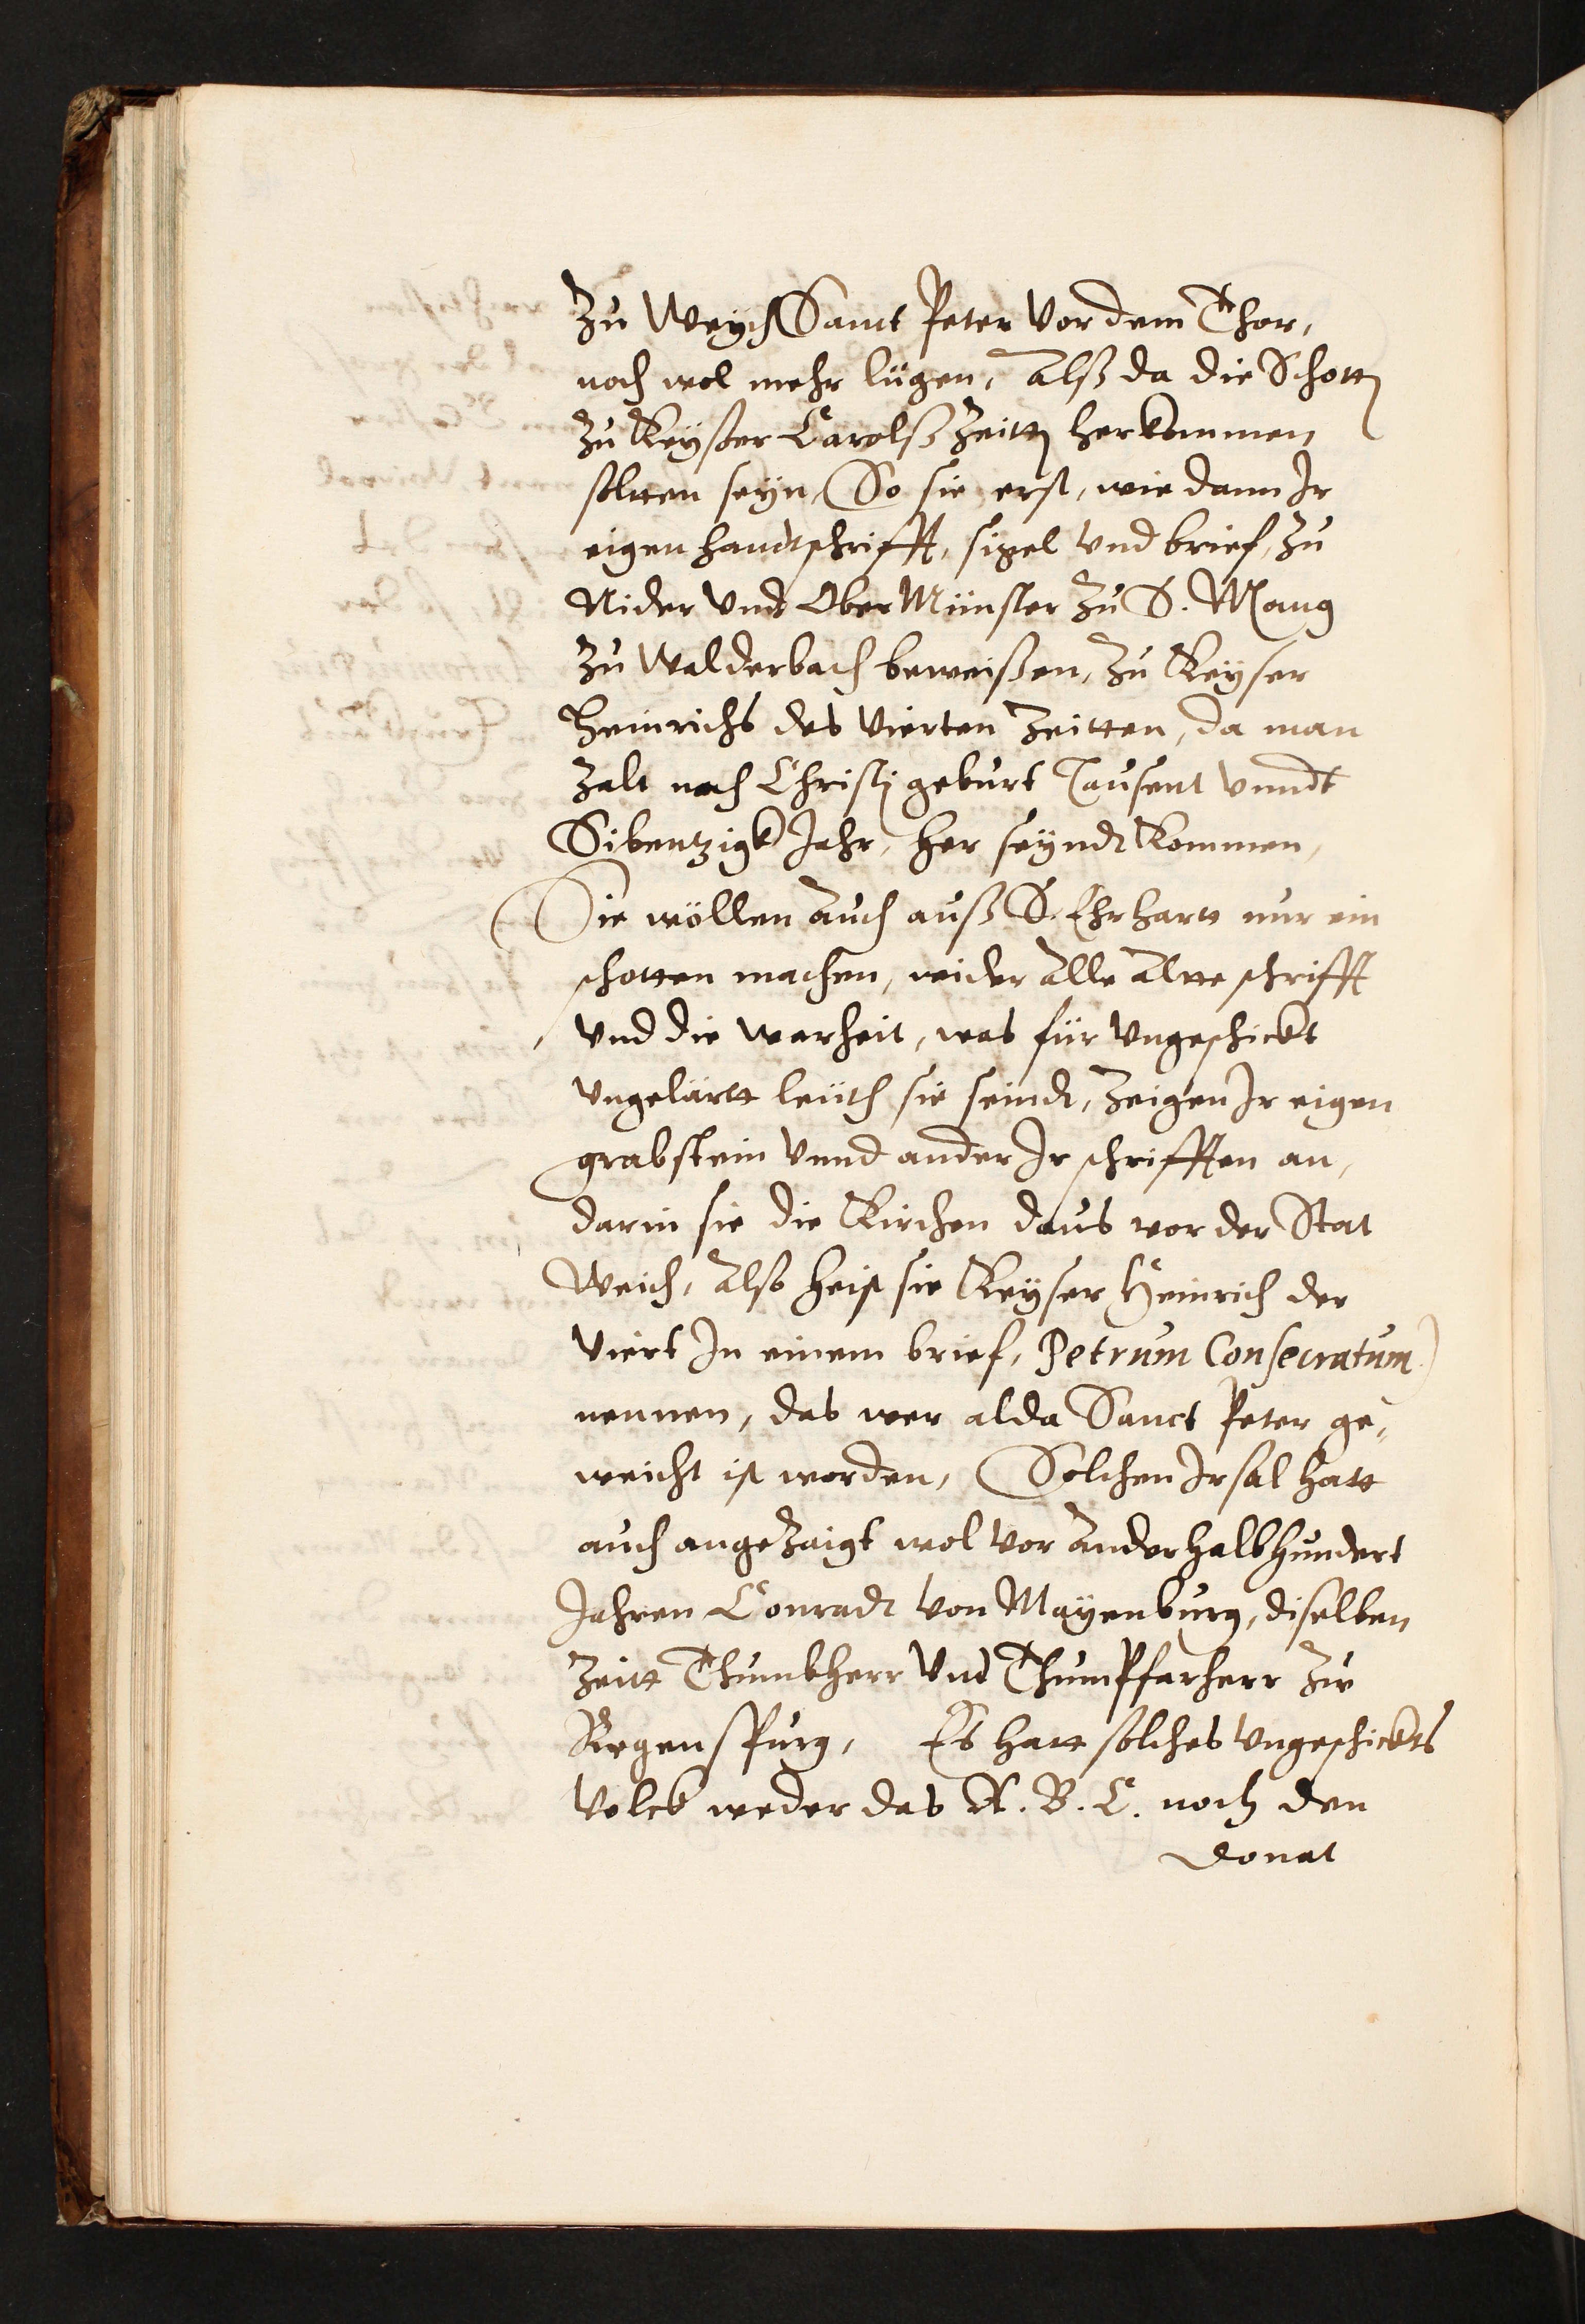 Zu Weych Sanct Peter vor dem Thor,
noch wol mehr lügen, Alß da die Schotten
Zu Keyßer Carolß Zeitten herkommen
soltten seyn, So sie erst, wie dann Ir
eigen handtschrifft, sigel vnd brief, Zu
Nider vnd Ober Münster Zu S. Mang
Zu Walderbach beweißen, Zu Keyser
Heinrichs des vierten Zeitten, da man
Zalt nach Christj geburt Tausent vnndt
Sibentzigk Jahr, her seyndt kommen,
Sie wöllen Auch auß S. Ehrhartt nur ein
schotten machen, wider Alle Altte schrifft
vnd die warheit, was für vngeschickt
vngelärtt leüth sie seindt, Zeigen Ir eigen
grabstein vnnd ander Ir schrifften an,
darin sie die Kirchen daus vor der Stat
Weich, Also heist sie Keyser Heinrich der
viert In einem brief, Petrum Consecratum
nennen, das wer alda Sanct Peter ge,
weicht ist worden, Solchen Irsal hatt
auch angeZaigt wol vor Anderhalb hundert
Jahren Conradt von Mayenburg, diselben
Zeitt Thumbherr vnd Thumpfarherr Zu
Regenspurg, Es hatt solches vngeschickts
volck weder das A. B. C. noch den
donat